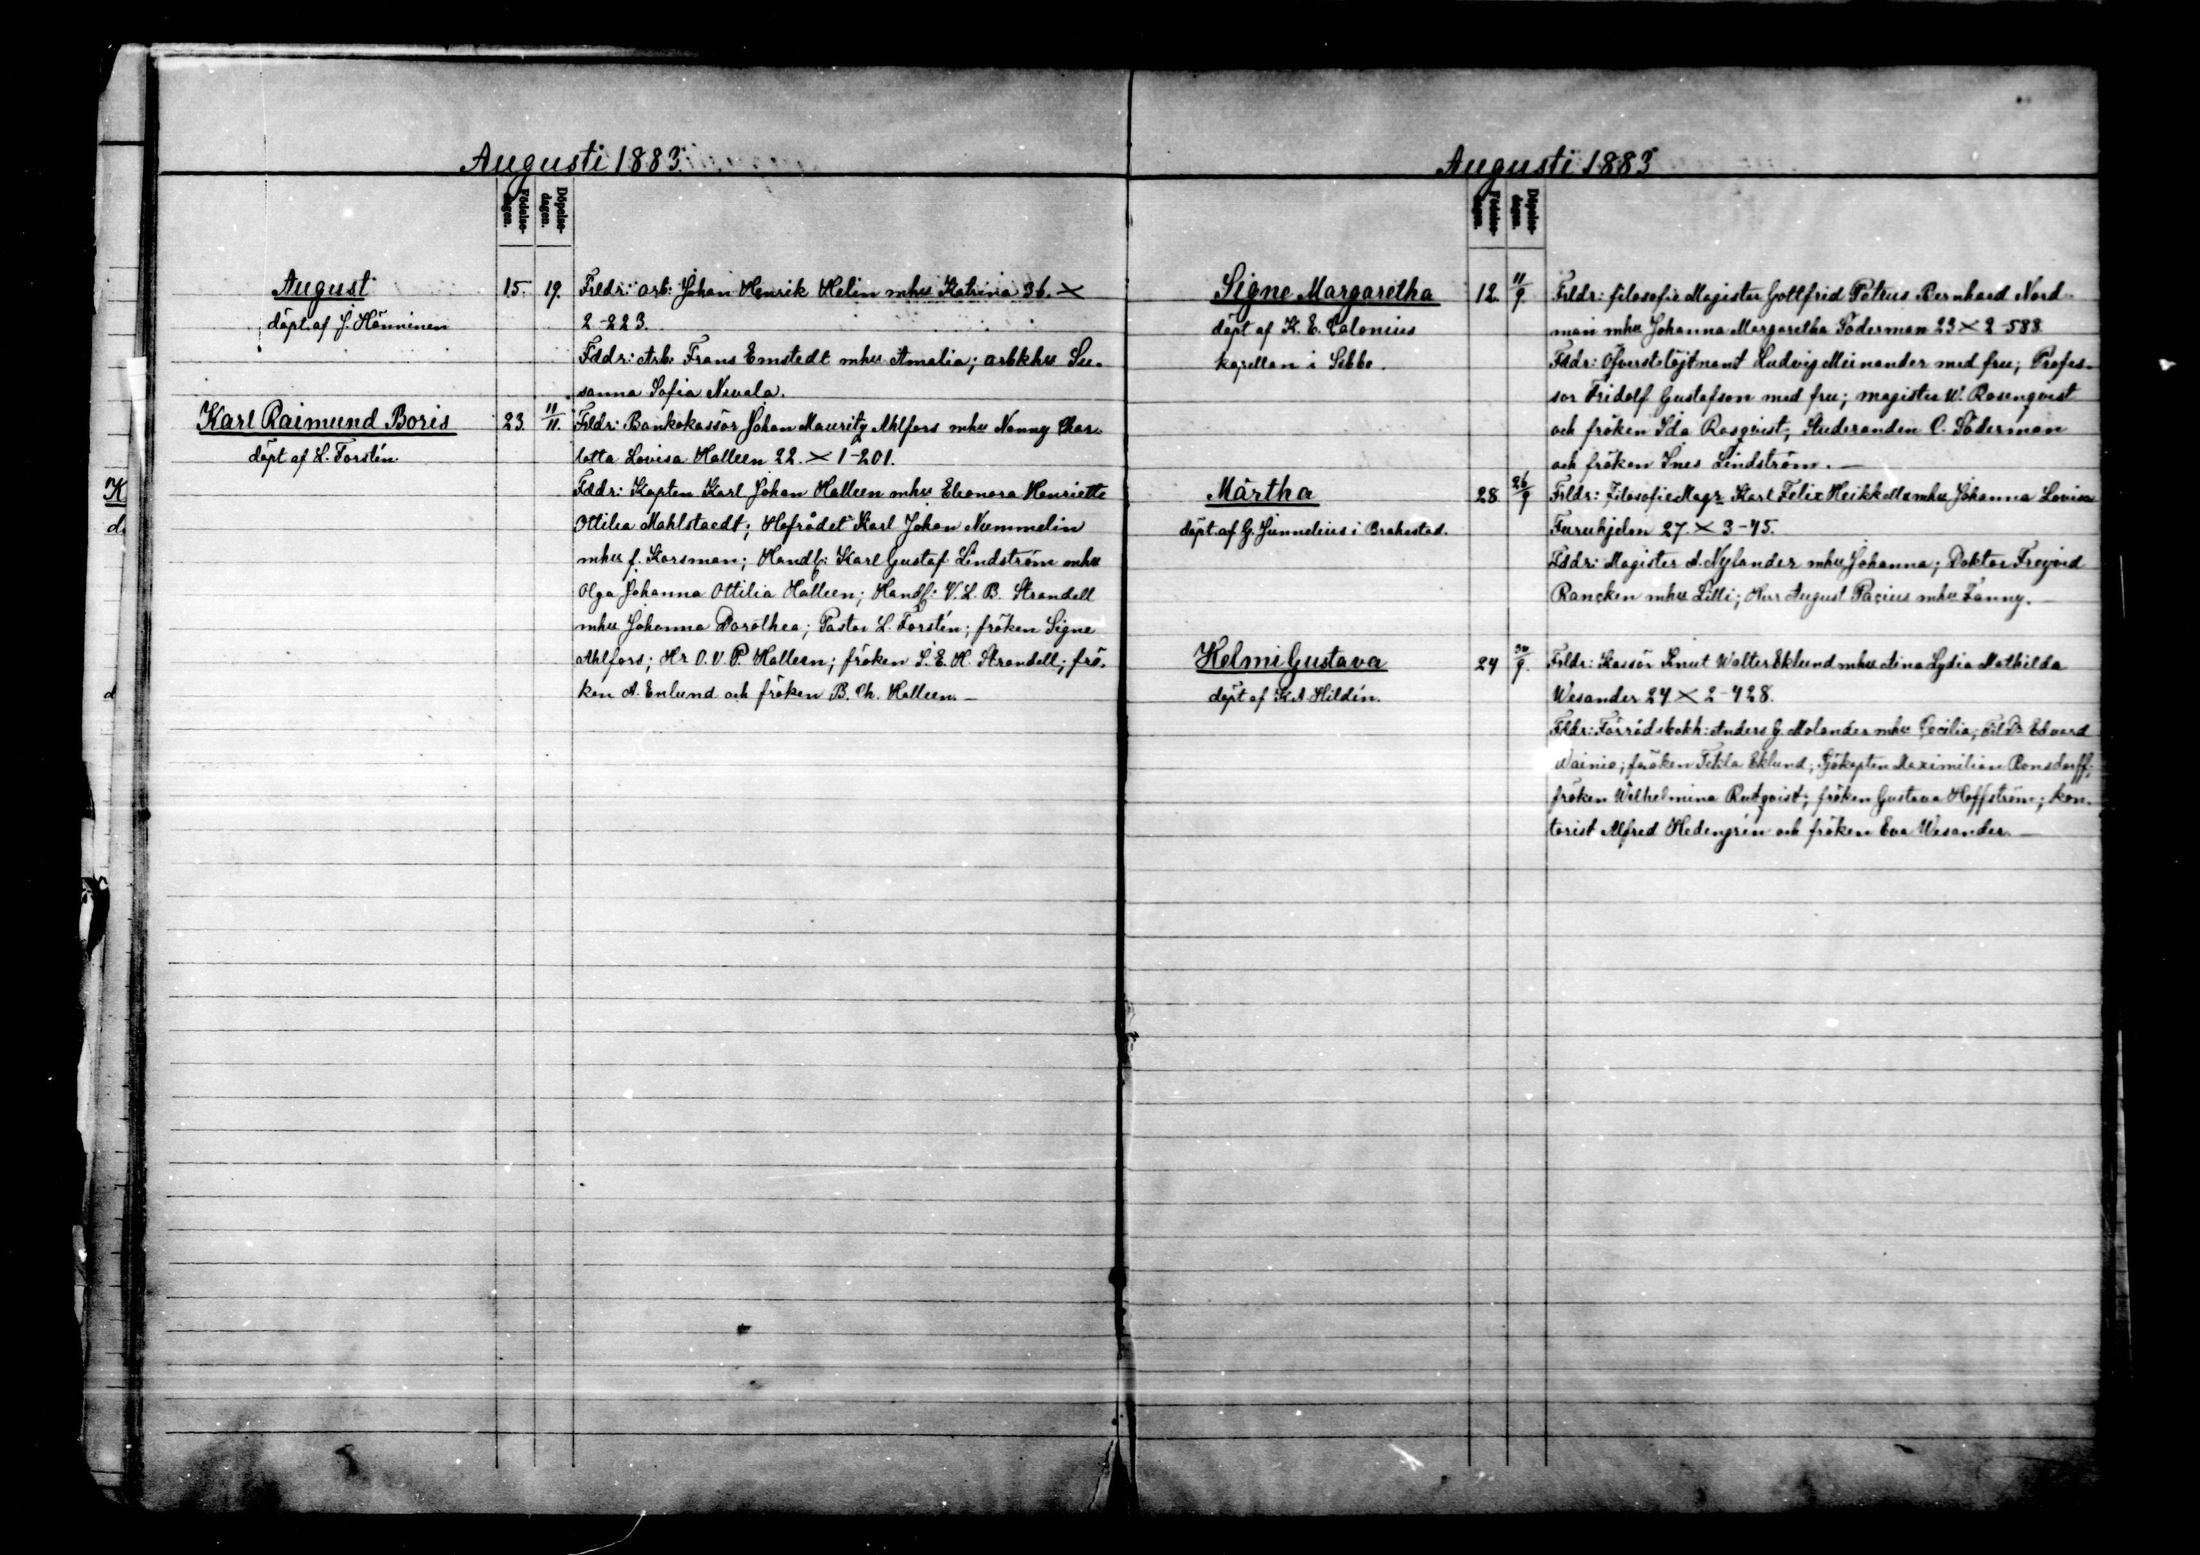 Augusti 1883.
Födelse-
dagen.
Döpelse-
dagen.
August
döpt. af J. Hänninen
15.
19.
Frldr: arb: Johan Henrik Helin mhu Katrina 36. ×
2-223.
Fddr: Arb. Frans Emstedt mhu Amalia; arbkhu Su-
sanna Sofia Nevala.
Karl Raimund Boris
döpt af L. Forstén.
23.
11/11.
Frldr: Bankokassör Johan Mauritz Ahlfors mhu Nanny Char-
lotta Lovisa Halleen 22. × 1-201.
Fddr: Kapten Karl Johan Halleen mhu Eleonora Henriette
Ottilia Mahlstaedt; Hofrådet Karl Johan Nummelin
mhu f. Karsman; Handl: Karl Gustaf Lindström mhu
Olga Johanna Ottilia Halleen; Handl: V. L. B. Strandell
mhu Johanna Dorothea; Pastor L. Forstén; fröken Signe
Ahlfors; Hr O. V. P. Halleen; fröken S. E. H. Strandell; frö-
ken A. Enlund och fröken B. Ch. Halleen. —
K
d.
d
Augusti 1883
Födelse-
dagen.
Döpelse-
dagen.
Signe Margaretha
döpt af K. E. Calonius
kapellan i Sibbo.
12.
11/9.
Frldr: filosofie Magister Gottfrid Petrus Bernhard Nord-
man mhu Johanna Margaretha Söderman 23 × 2-588
Fddr: Öfverstelöjtnant Ludvig Meinander med fru; Profes-
sor Fridolf Gustafson med fru; magister W. Rosenqvist
och fröken Ida Rosqvist; Studeranden C. Söderman
och fröken Ines Lindström. —
Märtha
döpt. af G. Junnelius i Brahestad.
28
26/9
Frldr: Filosofie Magr Karl Felix Heikkel mhu Johanna Lovisa
Furuhjelm 27. × 3-45.
Fddr: Magister A. Nylander mhu Johanna; Doktor Freyvid
Rancken mhu Lilli; Herr August Pacius mhu Fanny. —
Helmi Gustava
döpt af K A Hildén.
24
30/9.
Frldr: Kassör Knut Walter Eklund mhu Aina Lydia Mathilda
Wesander 24 × 2-428.
Fddr: Förrådsbokh: Anders G. Molander mhu Cecilia; Fil Dr Edvard
Wainio; fröken Tekla Eklund; Sjökapten Maximilian Bonsdorff;
fröken Wilhelmina Rudqvist; fröken Gustava Hoffström; kon-
torist Alfred Hedengrén och fröken Eva Wesander. —